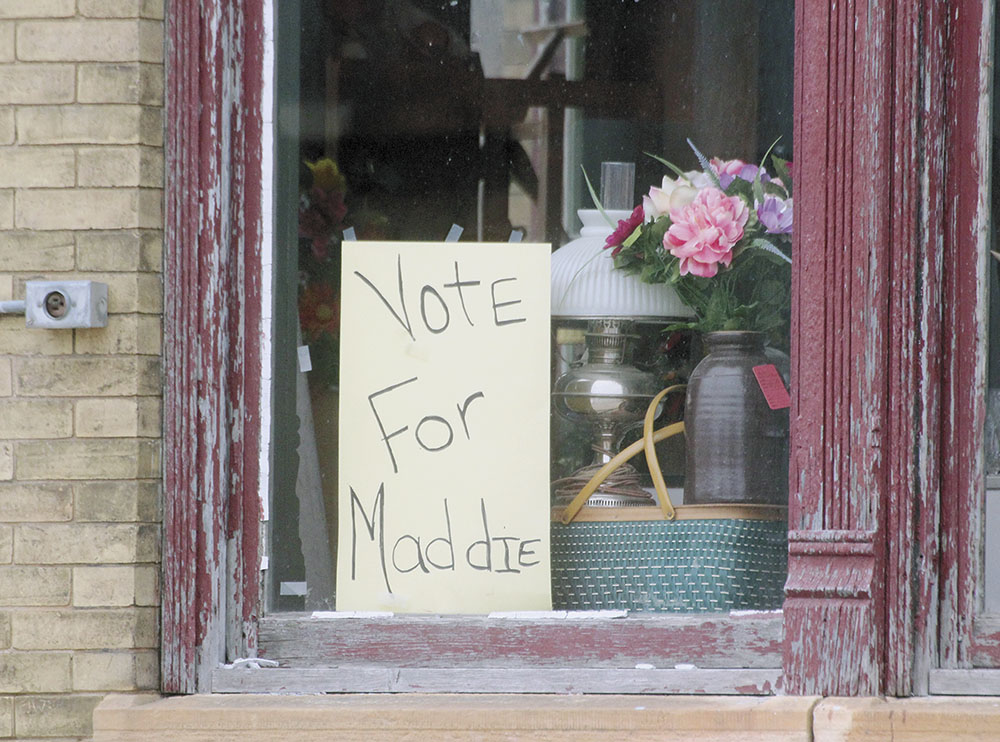 Vote
For
Maddie